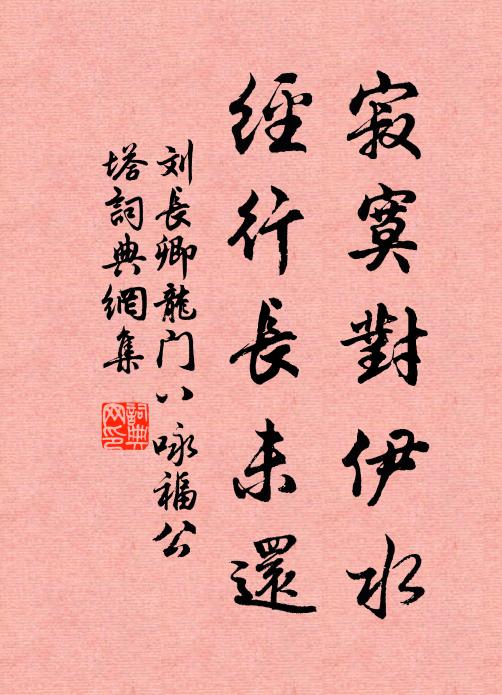 寂寞對伊水
經行長未還
刘長卿龍门八咏福公
塔詞典網集
詞典网印